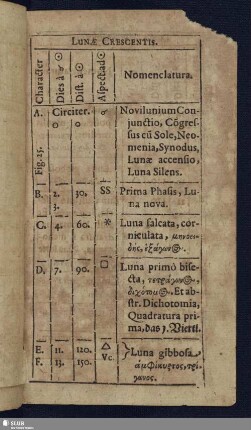 LUNÆ CRESCENTIS.
Character
Dies à ☌ ☉
Dist. à ☉
Aspectad ☉
Nomenclatura.
A. Circiter. ☌ Novilunium Con-
o o junctio, Cõgres-
sus cũ Sole, Neo-
menia, Synodus,
Lunæ accensio,
Fig. 25. Luna Silens.
B. 2. 30. SS Prima Phasis, Lu-
3. na nova.
C. 4. 60. * Luna falcata, cor-
niculata, μηνοει-
δης, ἑξάγων⊙.
D. 7. 90. □ Luna primò bise-
cta, τετράγων⊙,
διχότομ⊙. Et ab-
str. Dichotomia,
Quadratura pri-
ma, das 1. Viertl.
E. 11. 120. △ Luna gibbosa
F. 13. 150. Vc. ἀμφίκυρτος, τρί-
γωνος.
SLUB